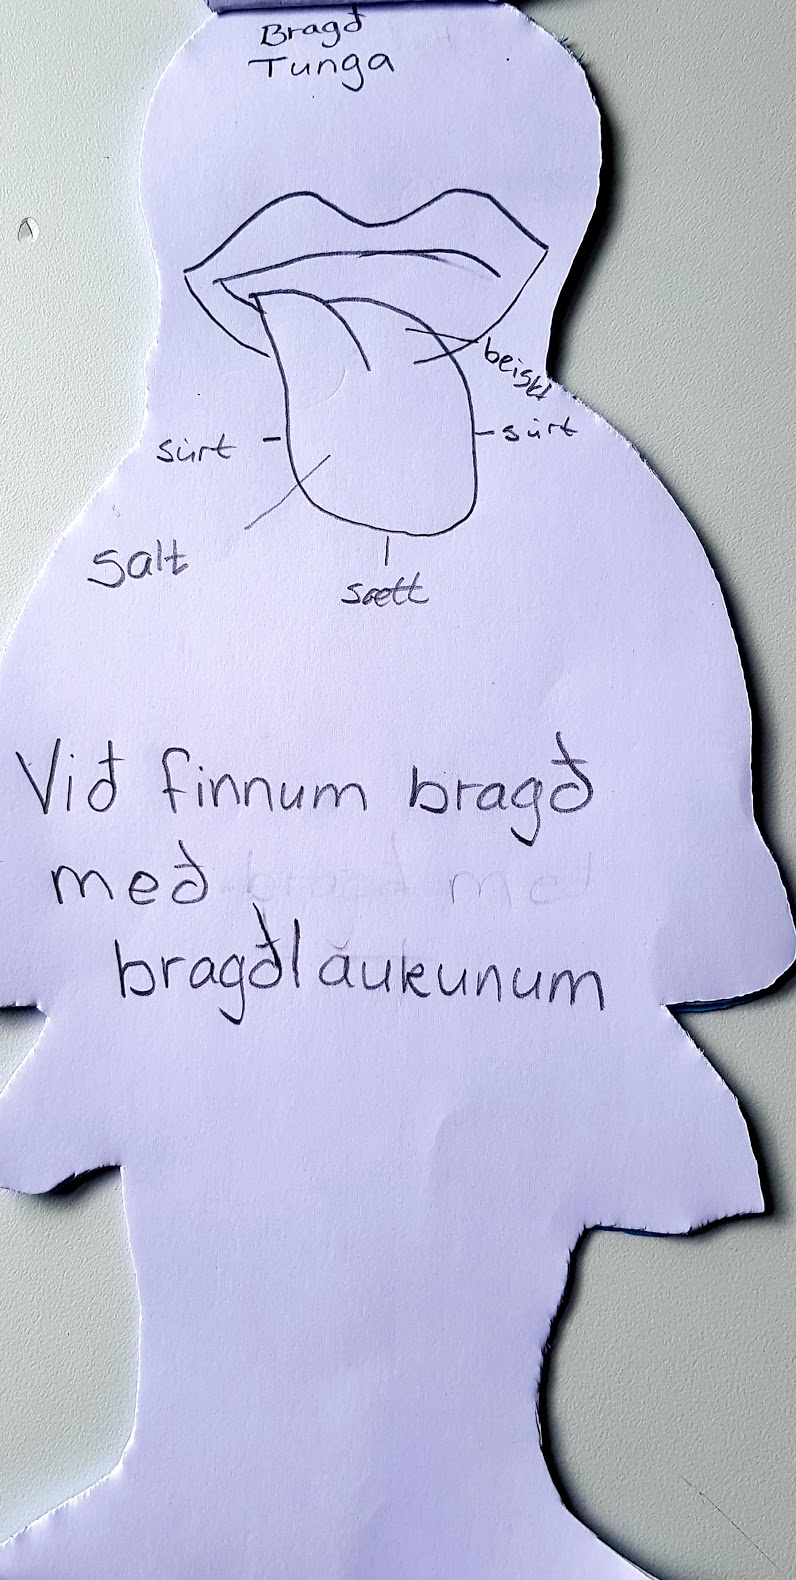 Bragð
Tunga
beiskt
súrt
súrt
salt
sætt
Við finnum bragð
með
bragðlaukunum